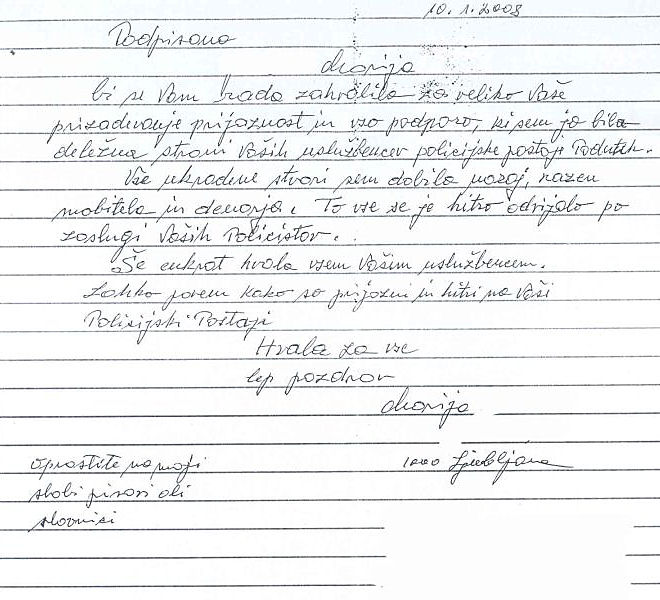 10.1.2008
Podpisana
Marija
bi se Vam rada zahvalila za veliko Vaše
prizadevanje prijaznost in vso podporo, ki sem jo bila
deležna strani Vaših uslužbencev policijske postaje Podutik.
Vse ukradene stvari sem dobila nazaj, razen
mobitela in denarja. To vse se je hitro odvijalo po
zaslugi Vaših Policistov.
Še enkrat hvala vsem Vašim uslužbencem.
Lahko povem kako so prijazni in hitri na Vaši
Policijski Postaji
Hvala za vse
lep pozdrav
Marija
1000 Ljubljana
oprostite na moji
slabi pisavi ali
slovnici